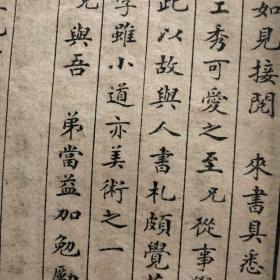 如見接閱　來書具悉
工秀可愛之至兄從事
此以故與人書札頗覺
字雖小道亦美術之一
兄與吾　弟當益加勉勵